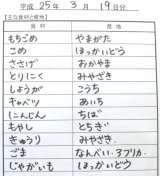 平成 25年 3月 19日
【主な食材と産地】
食材 産地
もちごめ やまがた
こめ ほっかいどう
ささげ おかやま
とりにく みやざき
しょうが こうち
キャベツ あいち
にんじん ちば
もやし とちぎ
きゅうり みやざき
ごま なんべい、アフリカ
じゃがいも ほっかいどう